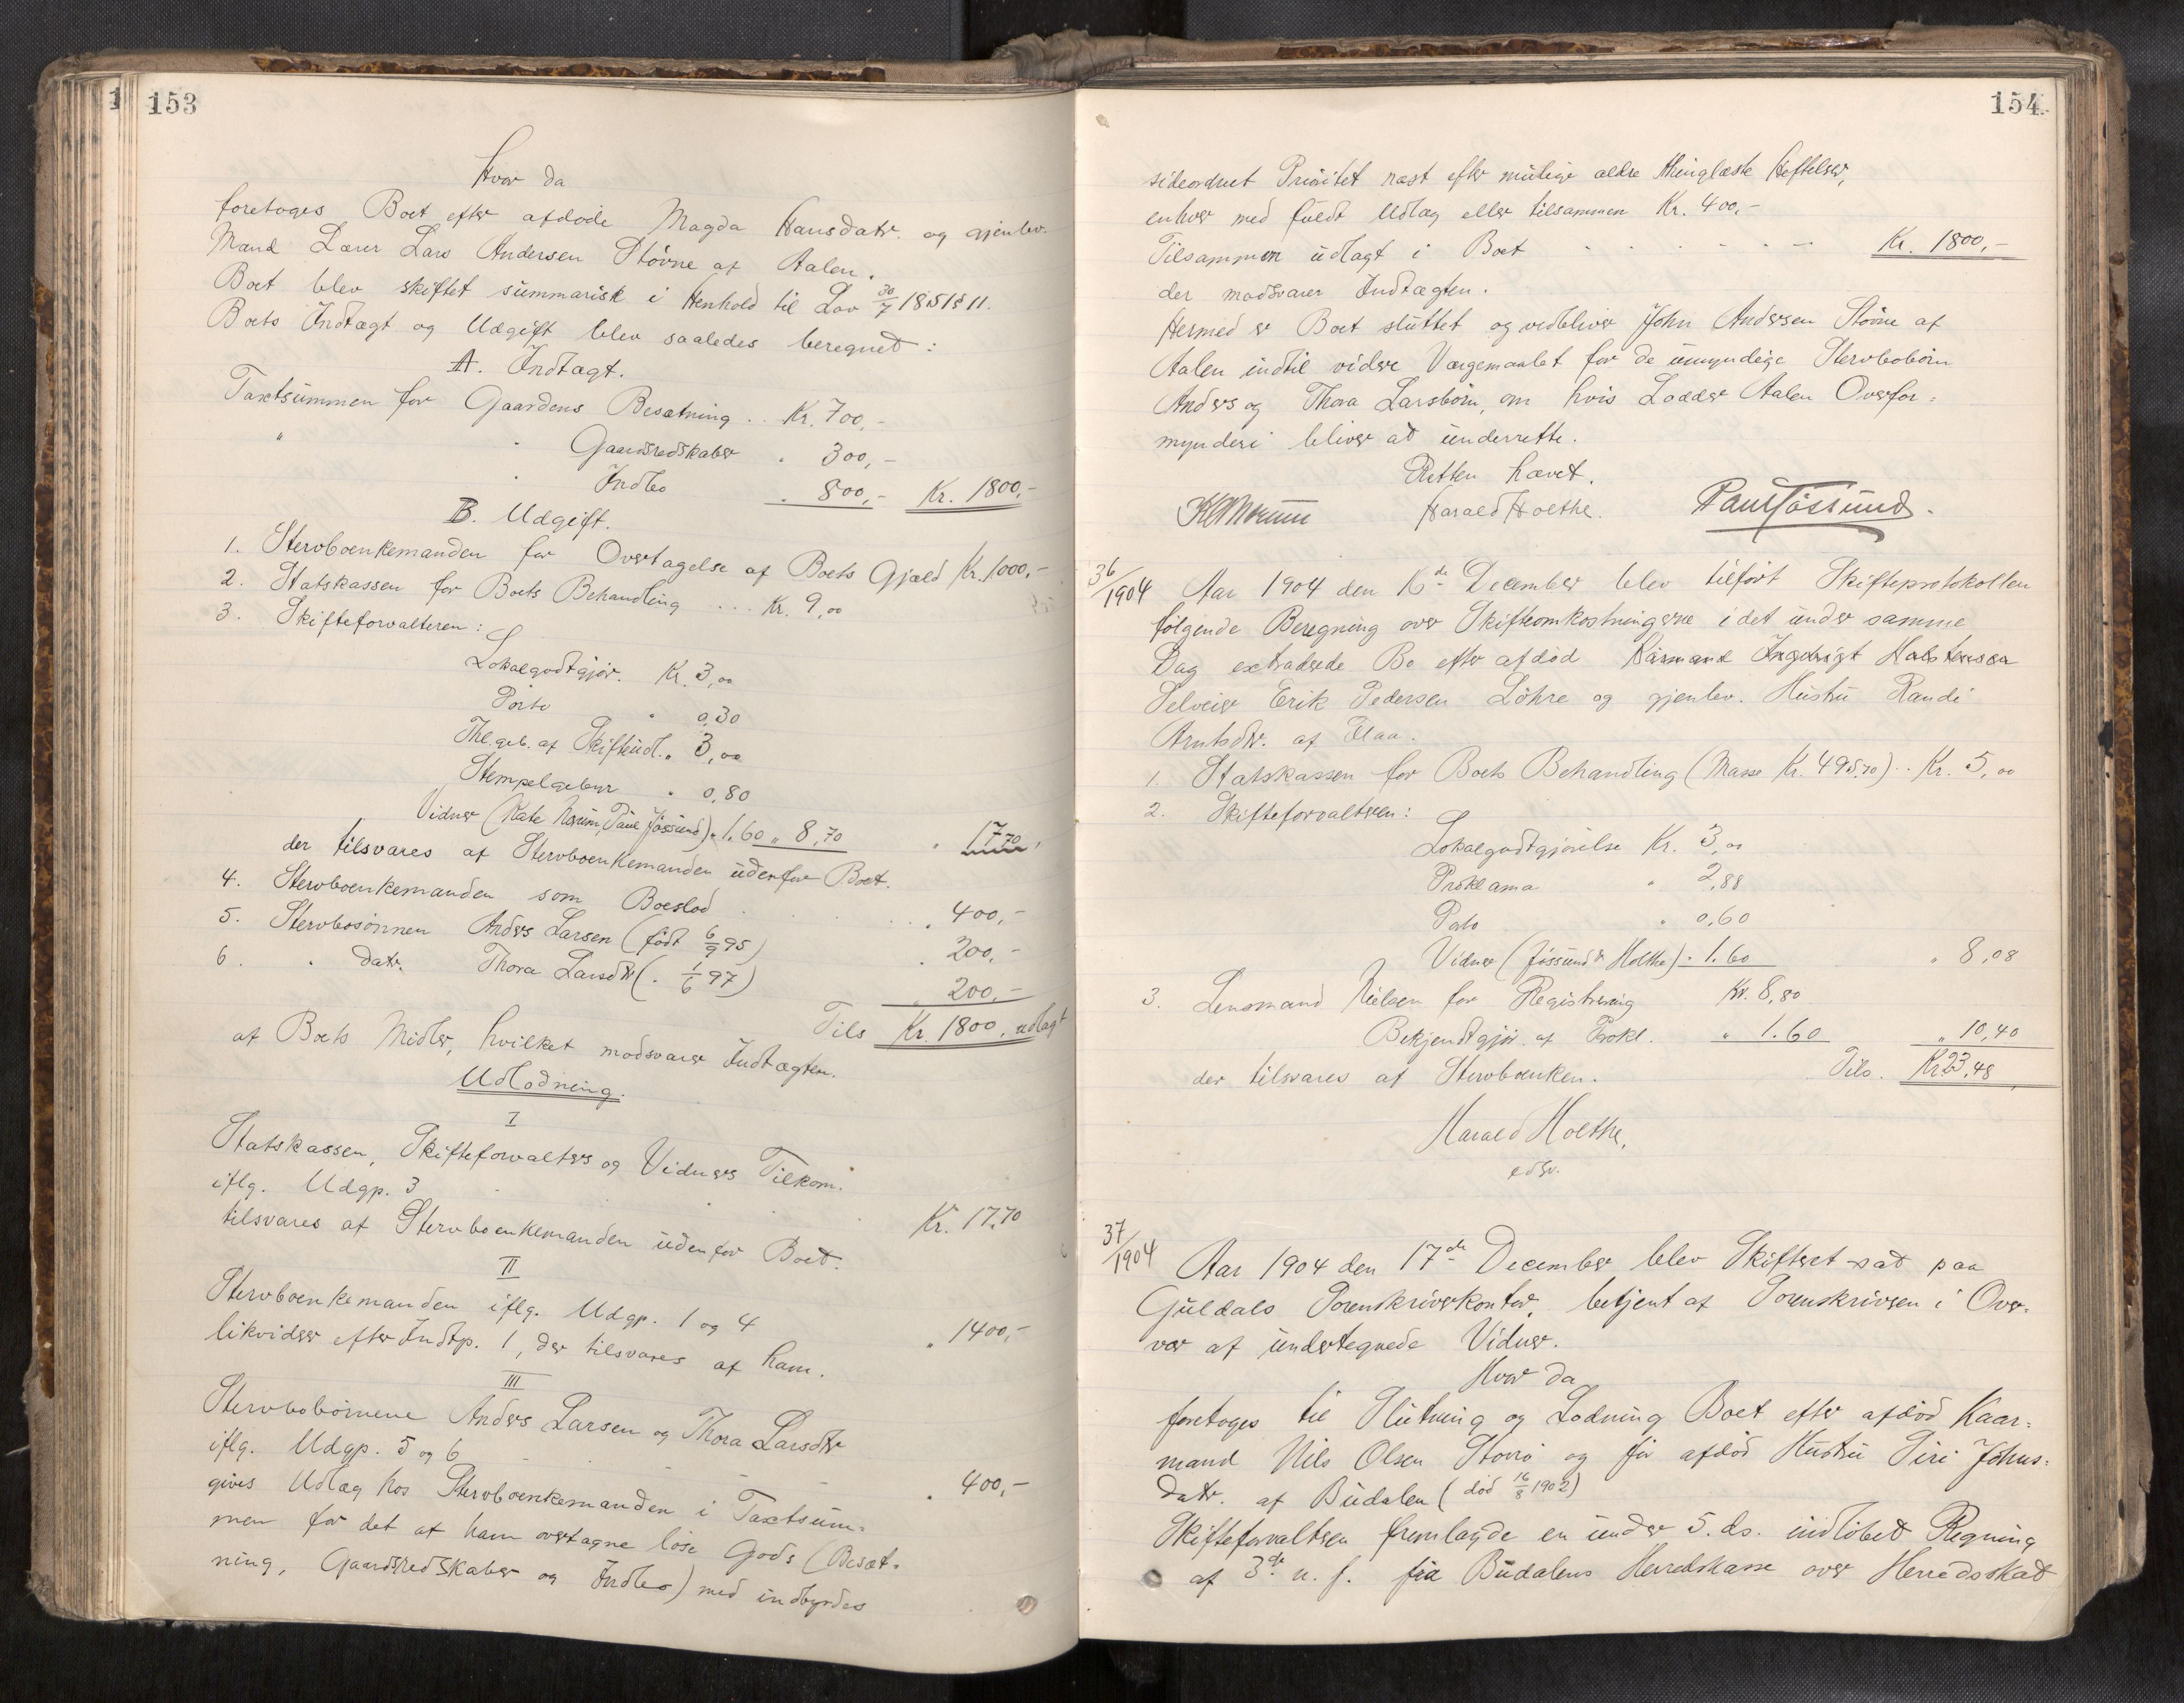 153
Hvor da
foretoges Boet efter afdøde Magda Hansdatr. og gjenlev.
Mand Lærer Lars Andersen Støvne af Aalen.
Boet blev skiftet summarisk i Henhold til Lov 30/7 1851 § 11.
Boets Indtægt og Udgift blev saaledes beregnet:
A. Indtægt.
Taxtsummen for Gaardens Besætning .. Kr. 700,-
" " Gaardsredskaber " 300,-
" Indbo " 800,- Kr. 1800,-
B. Udgift.
1. Stervboenkemanden for Overtagelse af Boets Gjæld Kr. 1000,-
2. Statskassen for Boets Behandling ... Kr. 9,00
3. Skifteforvalteren:
Lokalgodtgjør. Kr. 3,00
Porto " 0,30
Thl.geb. af Skifteudl. " 3,00
Stempelgebyr " 0,80
Vidner (Kate Norum, Paul Jøssund) " 1.60 " 8,70 " 17,70
der tilsvares af Stervboenkemanden udenfor Boet.
4. Stervboenkemanden som Boeslod . . . . . 400,-
5. Stervbosønnen Anders Larsen (født 6/9 95) . 200,-
6. " datr. Thora Larsdtr (" 1/6 97) " 200,-
Tils Kr. 1800, udlagt
af Boets Midler, hvilket modsvarer Indtægten.
Udlodning.
I
Statskassen, Skifteforvalters og Vidners Tilkom.
iflg. Udgp. 3 . . . Kr. 17.70
tilsvares af Stervboenkemanden udenfor Boet.
II
Stervboenkemanden iflg. Udgp. 1 og 4 " 1400,-
likvider efter Indtp. 1, der tilsvares af ham.
III
Stervbobørnene Anders Larsen og Thora Larsdtr
iflg. Udgp. 5 og 6 - - - . 400,-
gives Udlæg hos Stervboenkemanden i Taxtsum=
men for det af ham overtagne løse Gods (Besæt=
ning, Gaardsredskaber og Indbo) med indbyrdes
154
sideordnet Prioritet næst efter mulige ældre thinglæste Heftelser,
enhver med fuldt Udlæg eller tilsammen Kr. 400,-
Tilsammen udlagt i Boet . . . . . . Kr. 1800,-
der modsvarer Indtægten.
Hermed er Boet sluttet og vedbliver John Andersen Støvne af
Aalen indtil videre Værgemaalet for de umyndige Stervbobørn
Anders og Thora Larsbørn, om hvis Lodder Aalen Overfor=
mynderi bliver at underrette.
Retten hævet.
Harald Holthe. Paul Jøssund.
36/1904 Aar 1904 den 16de December blev tilført Skifteprotokollen
følgende Beregning over Skifteomkostningerne i det under samme
Dag extraderede Bo efter afdød Kaarmand Ingebrigt Halstensen
Selveier Erik Pedersen Løhre og gjenlev. Hustru Randi
Arntsdtr. af Flaa.
1. Statskassen for Boets Behandling (Masse Kr. 495,70) .. Kr. 5,00
2. Skifteforvalteren:
Lokalgodtgjørelse Kr. 3,00
Proklama " 2,88
Porto " 0,60
Vidner (Jøssund & Holthe) " 1.60 " 8,08
3. Lensmand Nielsen for Registrering Kr. 8,80
Bekjendtgjør. af Prokl. " 1.60 " 10,40
der tilsvares af Stervboenken. Tils. Kr. 23,48
Harald Holthe,
edsv.
37/1904 Aar 1904 den 17de December blev Skifteret sat paa
Guldals Sorenskriverkontor, betjent af Sorenskriveren i Over=
vær af undertegnede Vidner.
Hvor da
foretoges til Slutning og Lodning Boet efter afdød Kaar=
mand Nils Olsen Storrø og før afdød Hustru Siri Johns=
datr. af Budalen (død 16/8 1902)
Skifteforvalteren fremlagde en under 5. ds. indløbet Regning
af 3de n. f. fra Budalens Herredskasse over Herredsskat